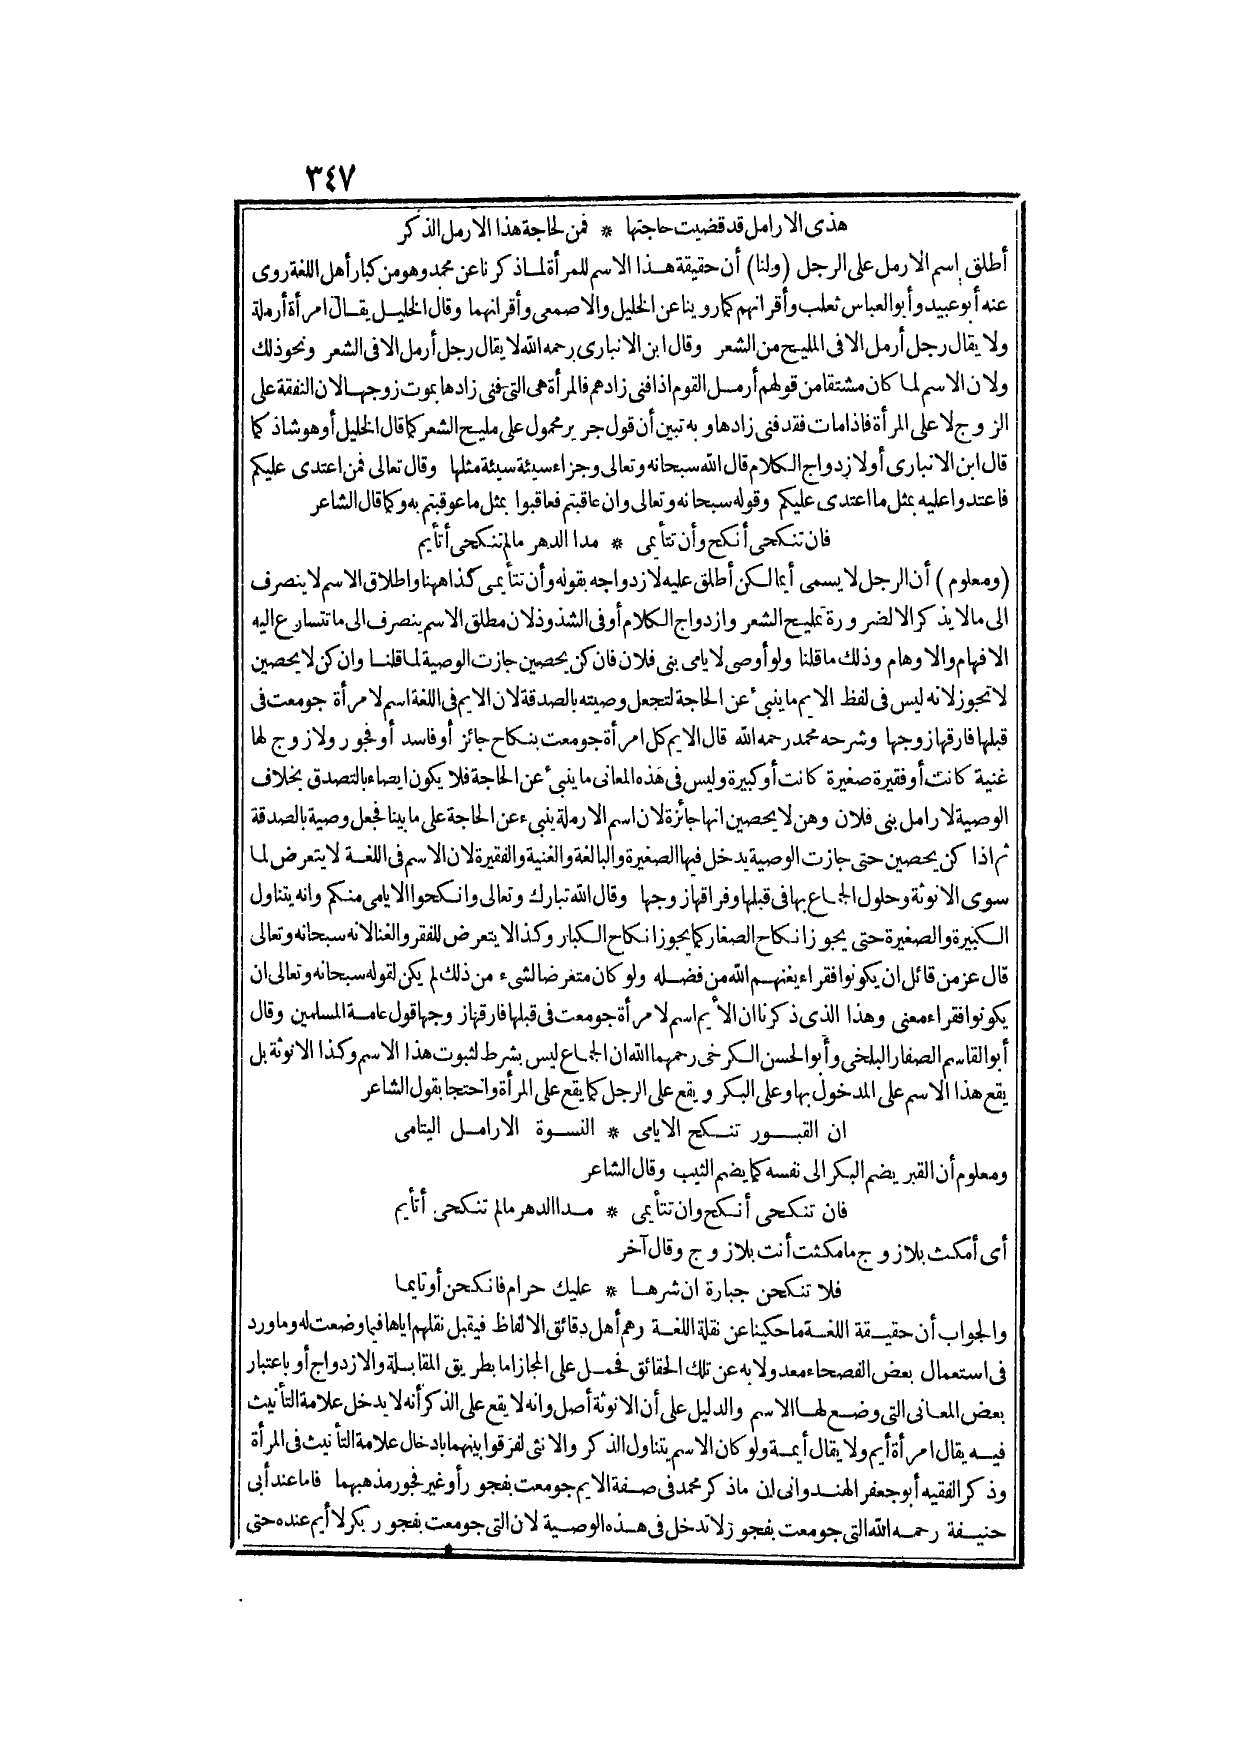 ٣٤٧
هذى الارامل قد قضيت حاجتها * فمن لحاجة هذا الارمل الذكر
أطلق إسم الارمل على الرجل (ولنا) أن حقيقة هذا الاسم للمرأة لما ذكرنا عن محمد وهو من كبار أهل اللغة روى
عنه أبو عبيد وأبو العباس ثعلب وأقرانهم كما روينا عن الخليل والاصمعى وأقرانهما وقال الخليل يقال امرأة أرملة
ولا يقال رجل أرمل الا فى المليح من الشعر وقال ابن الانبارى رحمه الله لا يقال رجل أرمل الا فى الشعر ونحو ذلك
ولان الاسم لما كان مشتقا من قولهم أرمل القوم اذا فنى زادهم فالمرأة هى التى فنى زادها بموت زوجها لان النفقة على
الزوج لا على المرأة فاذا مات فقد فنى زادها وبه تبين أن قول جرير محمول على مليح الشعر كما قال الخليل أو هو شاذ كما
قال ابن الانبارى أو لازدواج الكلام قال الله سبحانه وتعالى وجزاء سيئة سيئة مثلها وقال تعالى فمن اعتدى عليكم
فاعتدوا عليه بمثل ما اعتدى عليكم وقوله سبحانه وتعالى وان عاقبتم فعاقبوا بمثل ما عوقبتم به وكما قال الشاعر
فان تنكحى أنكح وأن تتأيمى * مدا الدهر مالم تنكحى أتأيم
(ومعلوم) أن الرجل لا يسمى أيما لكن أطلق عليه لازدواجه بقوله وأن تتأيمى كذا ههنا واطلاق الاسم لا ينصرف
الى مالا يذكر الا لضرورة تمليح الشعر وازدواج الكلام أو فى الشذوذ لان مطلق الاسم ينصرف الى ما تتسارع اليه
الافهام والاوهام وذلك ما قلنا ولو أوصى لايامى بنى فلان فان كن يحصين جازت الوصية لما قلنا وان كن لا يحصين
لا تجوز لانه ليس فى لفظ الايم ما ينبئ عن الحاجة لتجعل وصيته بالصدقة لان الايم فى اللغة اسم لامرأة جومعت فى
قبلها فارقها زوجها وشرحه محمد رحمه الله قال الايم كل امرأة جومعت بنكاح جائز أو فاسد أو فجور ولا زوج لها
غنية كانت أو فقيرة صغيرة كانت أو كبيرة وليس فى هذه المعانى ما ينبئ عن الحاجة فلا يكون ايصاء بالتصدق بخلاف
الوصية لارامل بنى فلان وهن لا يحصين انها جائزة لان اسم الارملة ينبىء عن الحاجة على ما بينا فجعل وصية بالصدقة
ثم اذا كن يحصين حتى جازت الوصية يدخل فيها الصغيرة والبالغة والغنية والفقيرة لان الاسم فى اللغة لا يتعرض لما
سوى الانوثة وحلول الجماع بها فى قبلها وفراقها زوجها وقال الله تبارك وتعالى وانكحوا الايامى منكم وانه يتناول
الكبيرة والصغيرة حتى يجوز انكاح الصغار كما يجوز انكاح الكبار وكذا لا يتعرض للفقر والغنا لانه سبحانه وتعالى
قال عز من قائل ان يكونوا فقراء يغنهم الله من فضله ولو كان متعرضا لشىء من ذلك لم يكن لقوله سبحانه وتعالى ان
يكونوا فقراء معنى وهذا الذى ذكرنا ان الأيم اسم لامرأة جومعت فى قبلها فارقها زوجها قول عامة المسلمين وقال
أبو القاسم الصفار البلخى وأبو الحسن الكرخى رحمهما الله ان الجماع ليس بشرط لثبوت هذا الاسم وكذا الانوثة بل
يقع هذا الاسم على المدخول بها وعلى البكر ويقع على الرجل كما يقع على المرأة واحتجا بقول الشاعر
ان القبور تنكح الايامى * النسوة الارامل اليتامى
ومعلوم أن القبر يضم البكر الى نفسه كما يضم الثيب وقال الشاعر
فان تنكحى أنكح وان تتأيمى * مدا الدهر مالم تنكحى أتأيم
أى أمكث بلا زوج ما مكثت أنت بلا زوج وقال آخر
فلا تنكحن جبارة ان شرها * عليك حرام فانكحن أو تايما
والجواب أن حقيقة اللغة ما حكينا عن نقلة اللغة وهم أهل دقائق الالفاظ فيقبل نقلهم اياها فيما وضعت له وما ورد
فى استعمال بعض الفصحاء معدولا به عن تلك الحقائق فحمل على المجاز اما بطريق المقابلة والازدواج أو باعتبار
بعض المعانى التى وضع لها الاسم والدليل على أن الانوثة أصل وانه لا يقع على الذكر أنه لا يدخل علامة التأنيث
فيه يقال امرأة أيم ولا يقال أيمة ولو كان الاسم يتناول الذكر والانثى لفرقوا بينهما بادخال علامة التأنيث فى المرأة
وذكر الفقيه أبو جعفر الهندوانى ان ما ذكر محمد فى صفة الايم جومعت بفجور أو غير فجور مذهبهما فاما عند أبى
حنيفة رحمه الله التى جومعت بفجور لا تدخل فى هذه الوصية لان التى جومعت بفجور بكر لا أيم عنده حتى